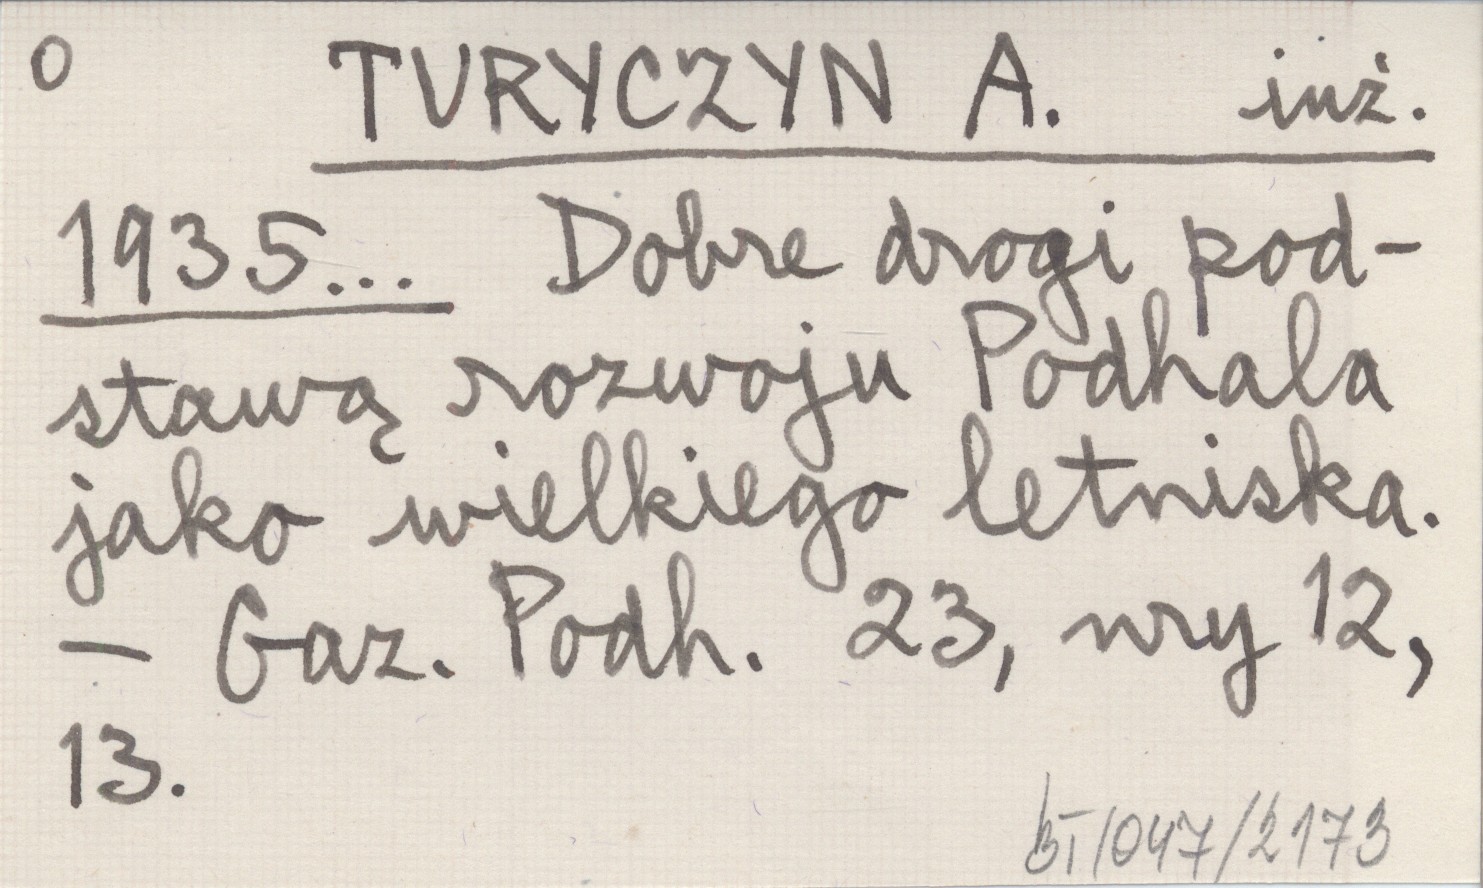 O TURYCZYN A. inż.
1935... Dobre drogi pod-
stawą rozwoju Podhala
jako wielkiego letniska.
— Gaz. Podh. 23, nry 12,
13.
BI/047/2173